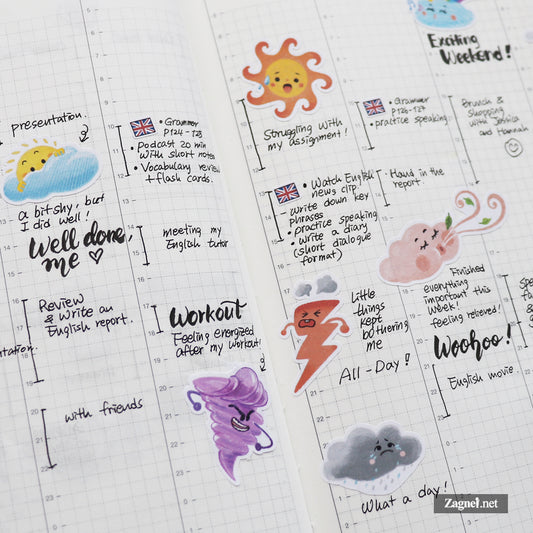 presentation.
a bit shy, but
I did well!
Well done,
me ♡
Review
& Write an
English report.
with friends
• Grammer
P124 - 128
• Podcast 20 min
with short notes
• Vocabulary review
+ flash cards.
meeting my
English tutor
Workout
Feeling energized
after my workout!
Struggling with
my assignment!
• Watch English
news clip
• Write down key
phrases
• practice speaking
• Write a diary
(short dialogue
format)
Little
things
kept
bothering
me
All-Day!
What a day!
• Grammer
P126 - 127
• practice speaking
Hand in the
report
Finished
everything
important this
week!
feeling relieved!
Woohoo!
English movie
Exciting
Weekend!
Brunch &
Shopping
with Jessica
and Hannah
Zagnel.net